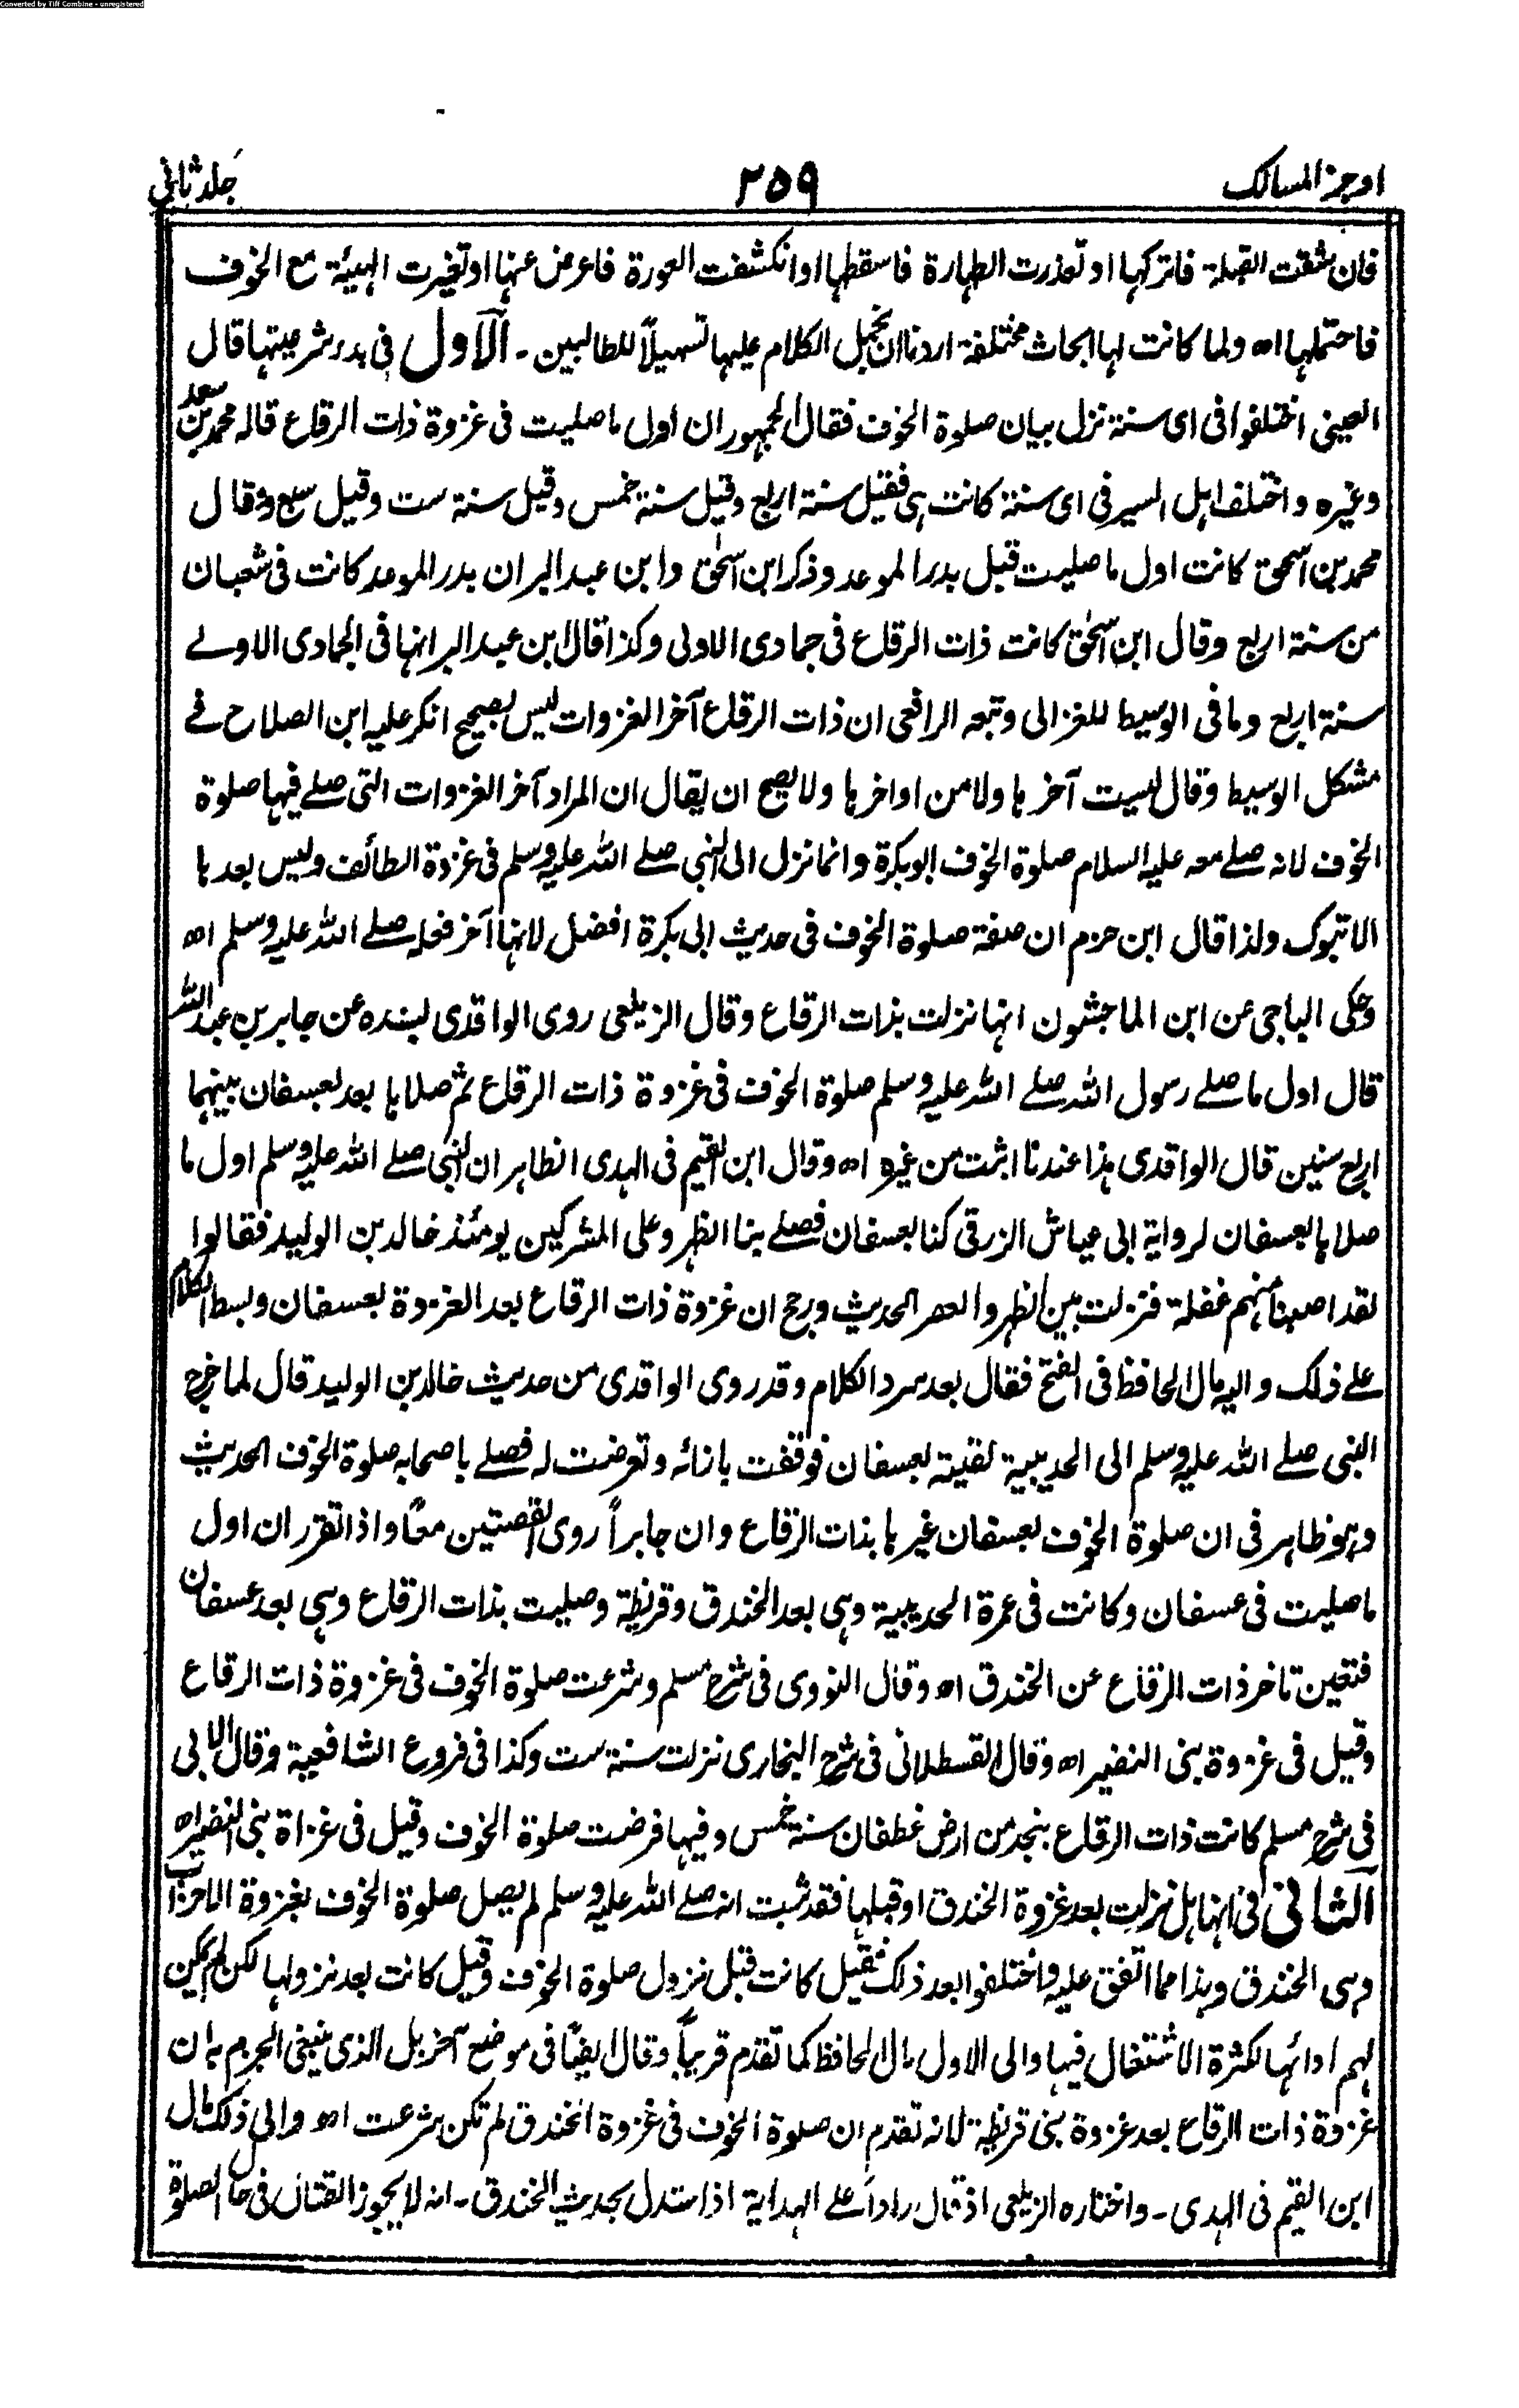 Converted by Tiff Combine - unregistered
اوجز المسالك
٢٥٩
جلد ثاني
فان شقت القبلة فاتركها او تعذرت الطهارة فاسقطها او انكشفت العورة فاعرض عنها او تغيرت الهيئة مع الخوف
فاحتملها اھ ولما كانت لها ابحاث مختلفة اردنا ان نجمل الكلام عليها تسهيلاً للطالبين ۔ الآول فى بدء شرعيتها قال
العينى اختلفوا فى اى سنة نزل بيان صلوة الخوف فقال الجمهور ان اول ما صليت فى غزوة ذات الرقاع قاله محمد بن سعد
وغيره واختلف اهل السير فى اى سنة كانت هى فقيل سنة اربع وقيل سنة خمس وقيل سنة ست وقيل سبع وقال
محمد بن اسحق كانت اول ما صليت قبل بدر الموعد وذكر ابن اسحٰق وابن عبد البر ان بدر الموعد كانت فى شعبان
من سنة اربع وقال ابن اسحٰق كانت ذات الرقاع فى جمادى الاولى وكذا قال ابن عبد البر انها فى الجمادى الاولے
سنة اربع وما فى الوسيط للغزالى وتبعه الرافعى ان ذات الرقاع آخر الغزوات ليس بصحيح انكر عليه ابن الصلاح فے
مشكل الوسيط وقال ليست آخرها ولا من اواخرها ولا يصح ان يقال ان المراد آخر الغزوات التى صلے فيها صلوة
الخوف لانه صلے معه عليه السلام صلوة الخوف ابو بكرة وانما نزل الى النبى صلے الله عليه وسلم فى غزوة الطائف وليس بعدها
الا تبوك ولذا قال ابن حزم ان صفة صلوة الخوف فى حديث ابى بكرة افضل لانها آخر فعله صلے الله عليه وسلم اھ
وحكى الباجى عن ابن الماجشون انها نزلت بذات الرقاع وقال الزيلعى روى الواقدى بسنده عن جابر بن عبد الله
قال اول ما صلے رسول الله صلے الله عليه وسلم صلوة الخوف فى غزوة ذات الرقاع ثم صلاها بعد بعسفان بينهما
اربع سنين قال الواقدى هذا عندنا اثبت من غيره اھ وقال ابن القيم فى الهدى الظاهر ان النبى صلے الله عليه وسلم اول ما
صلاها بعسفان لرواية ابى عياش الزرقى كنا بعسفان فصلے بنا الظهر وعلى المشركين يومئذ خالد بن الوليد فقالوا
لقد اصبنا منهم غفلة فنزلت بين الظهر والعصر الحديث ورجح ان غزوة ذات الرقاع بعد الغزوة بعسفان وبسط الكلام
علے ذلك واليه مال الحافظ فى الفتح فقال بعد سرد الكلام وقد روى الواقدى من حديث خالد بن الوليد قال لما خرج
النبى صلے الله عليه وسلم الى الحديبية لقيته بعسفان فوقفت بازائه وتعرضت له فصلے باصحابه صلوة الخوف الحديث
وهو ظاهر فى ان صلوة الخوف بعسفان غيرها بذات الرقاع وان جابراً روى القصتين معًا واذا تقرر ان اول
ما صليت فى عسفان وكانت فى عمرة الحديبية وهى بعد الخندق وقريظة وصليت بذات الرقاع وهى بعد عسفان
فتعين تاخر ذات الرقاع عن الخندق اھ وقال النووى فى شرح مسلم وشرعت صلوة الخوف فى غزوة ذات الرقاع
وقيل فى غزوة بنى النضير اھ وقال القسطلانى فى شرح البخارى نزلت سنة ست وكذا فى فروع الشافعية وقال الابى
فى شرح مسلم كانت ذات الرقاع بنجد من ارض غطفان سنة خمس وفيها فرضت صلوة الخوف وقيل فى غزاة بنى النضير اھ
الثانى فى انها هل نزلت بعد غزوة الخندق او قبلها فقد ثبت انه صلے الله عليه وسلم لم يصل صلوة الخوف بغزوة الاحزاب
وهى الخندق وهذا مما اتفق عليه واختلفوا بعد ذلك فقيل كانت قبل نزول صلوة الخوف وقيل كانت بعد نزولها لكن لم يمكن
لهم ادائها لكثرة الاشتغال فيها والى الاول مال الحافظ كما تقدم قريباً وقال ايضًا فى موضع آخر بل الذى ينبغى الجزم به ان
غزوة ذات الرقاع بعد غزوة بنى قريظة لانه تقدم ان صلوة الخوف فى غزوة الخندق لم تكن شرعت اھ والى ذلك مال
ابن القيم فى الهدى ۔ واختاره الزيلعى اذ قال راداً علے الهداية اذا ستدل بحديث الخندق ۔ انه لا يجوز القتال فى حال الصلوة